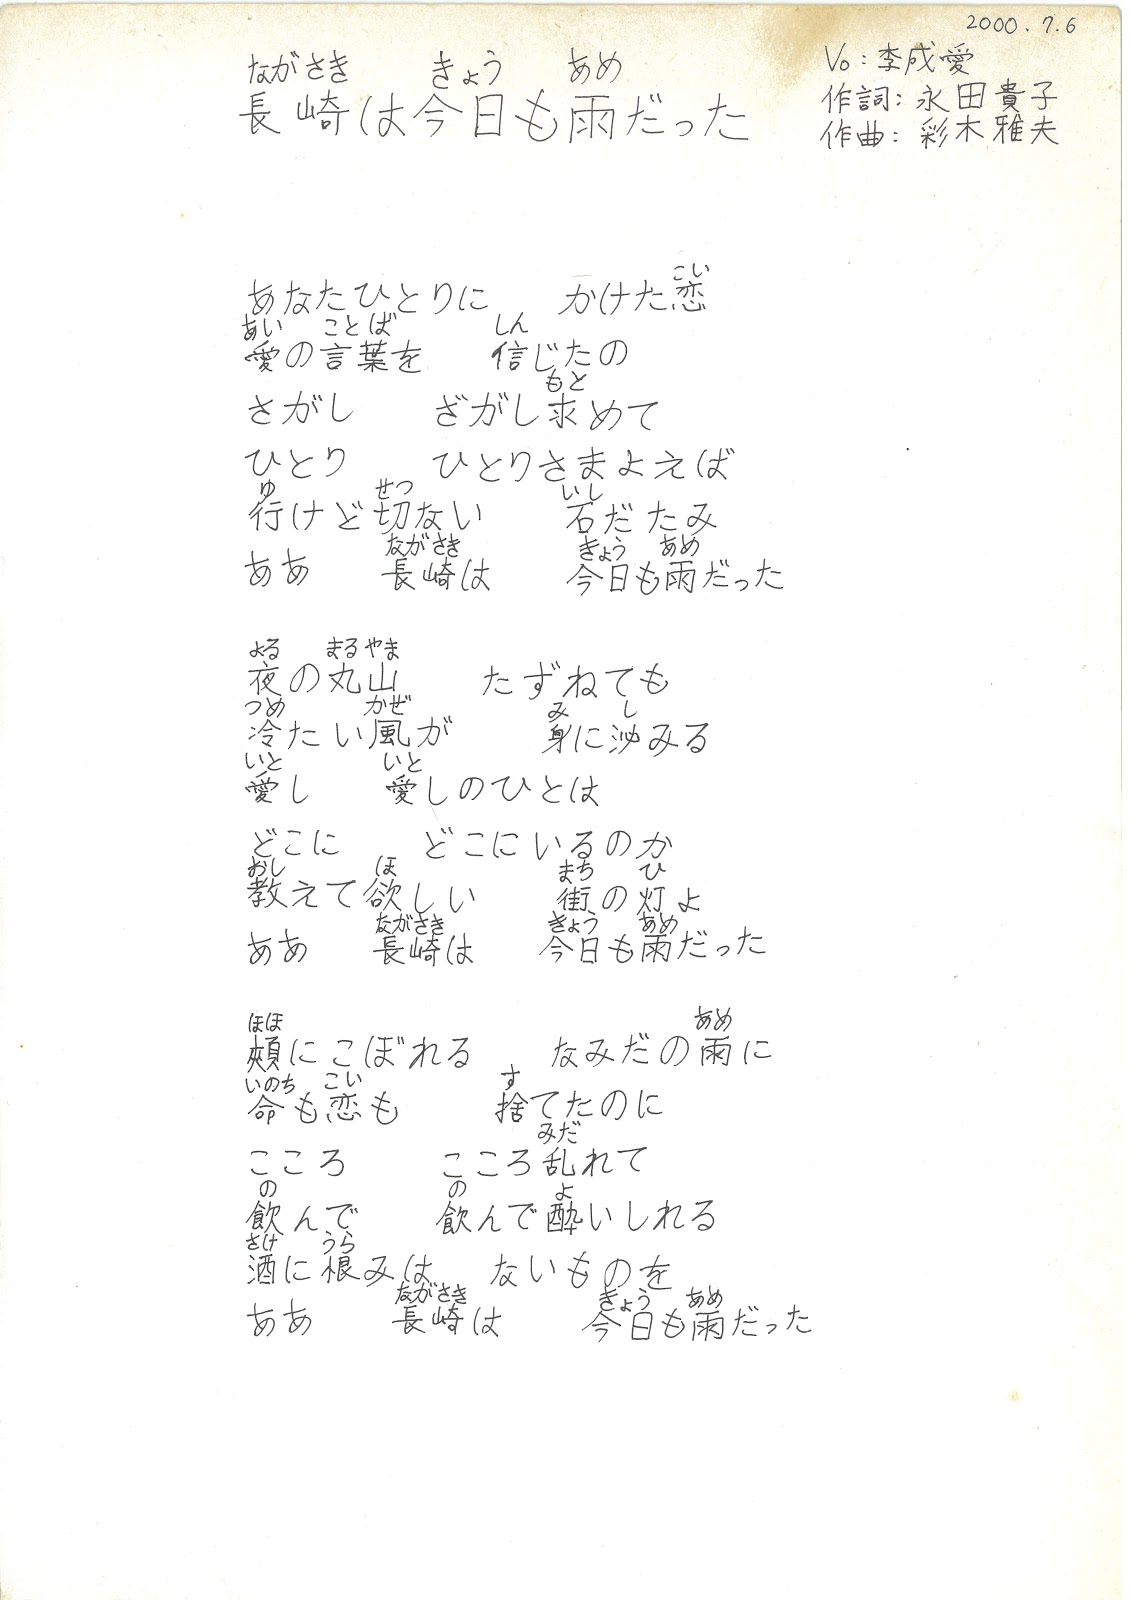 2000.7.6
ながさき きょう あめ
長崎は今日も雨だった
Vo:李成愛
作詞:永田貴子
作曲:彩木雅夫
こい
あなたひとりに かけた恋
あい ことば しん
愛の言葉を 信じたの
もと
さがし ざがし求めて
ひとり ひとりさまよえば
ゆ せつ いし
行けど切ない 石だたみ
ながさき きょう あめ
ああ 長崎は 今日も雨だった
よる まるやま
夜の丸山 たずねても
つめ かぜ み し
冷たい風が 身に泌みる
いと いと
愛し 愛しのひとは
どこに どこにいるのか
おし ほ まち ひ
教えて欲しい 街の灯よ
ながさき きょう あめ
ああ 長崎は 今日も雨だった
ほほ あめ
頬にこぼれる なみだの雨に
いのち こい す
命も恋も 捨てたのに
みだ
こころ こころ乱れて
の の よ
飲んで 飲んで酔いしれる
さけ うら
酒に根みは ないものを
ながさき きょう あめ
ああ 長崎は 今日も雨だった